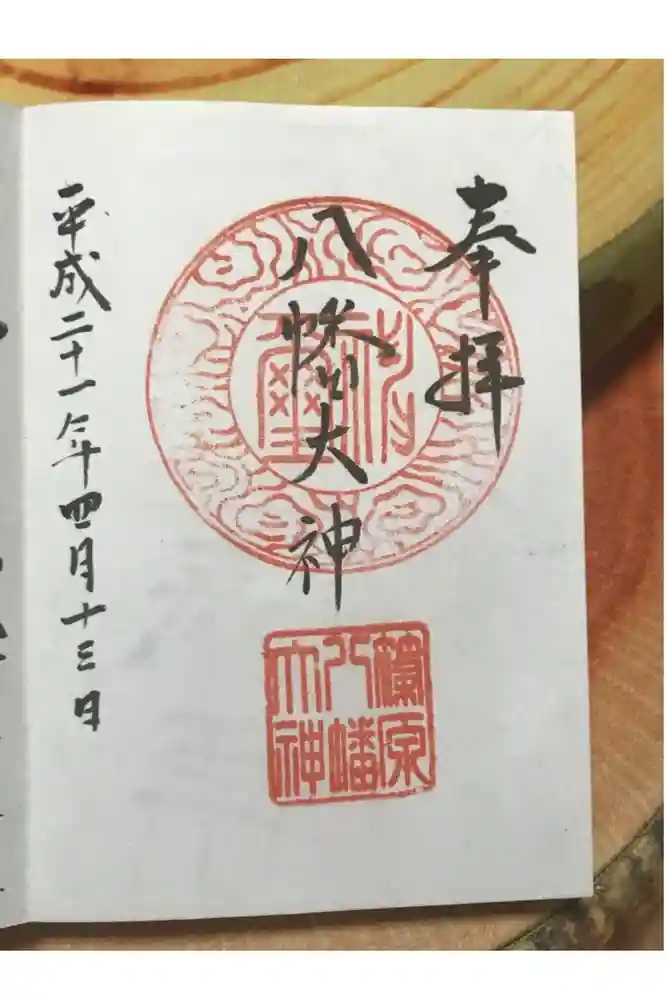 奉拝
八幡大神
原
八幡
大神
平成二十一年四月十三日